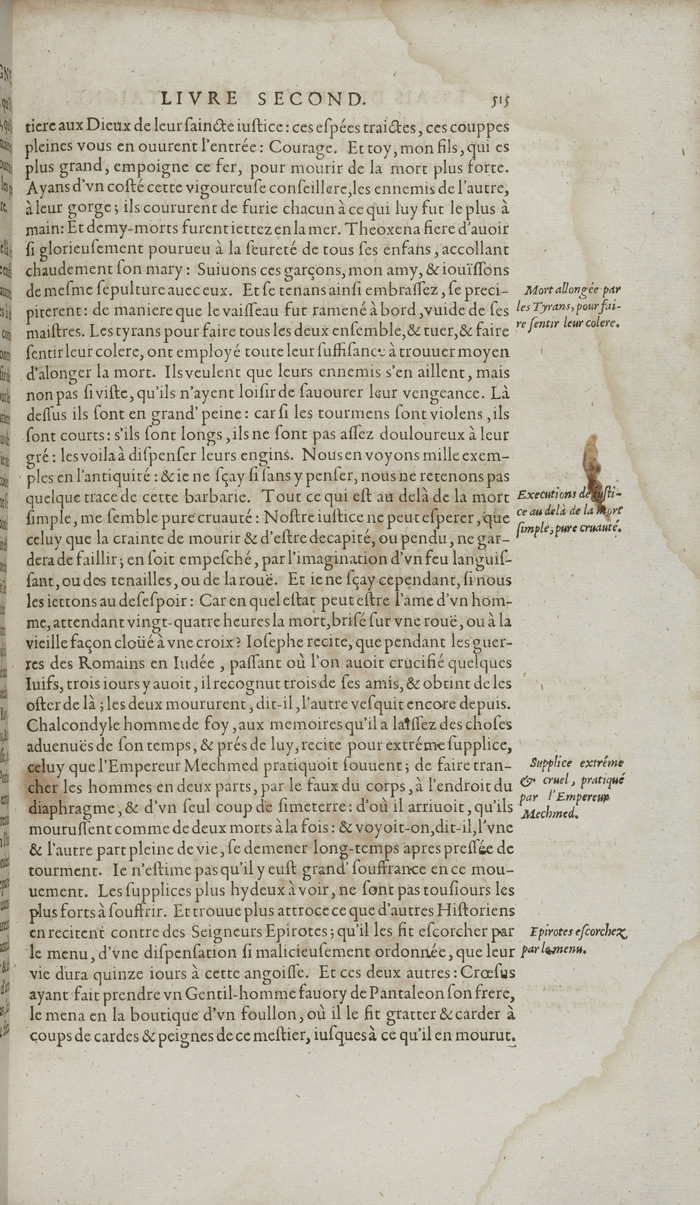 LIVRE SECOND. 515
tiere aux Dieux de leur ſaincte iuſtice : ces eſpées traictes, ces couppes
pleines vous en ouurent l'entrée : Courage. Et toy, mon fils, qui es
plus grand, empoigne ce fer, pour mourir de la mort plus forte.
Ayans d'vn coſté cette vigoureuſe conſeillere, les ennemis de l'autre,
à leur gorge ; ils coururent de furie chacun à ce qui luy fut le plus à
main : Et demy-morts furent iettez en la mer. Theoxena fiere d'auoir
ſi glorieuſement pourueu à la ſeureté de tous ſes enfans, accollant
chaudement ſon mary : Suiuons ces garçons, mon amy, & iouïſſons
de meſme ſepulture auec eux. Et ſe tenans ainſi embraſſez, ſe preci-
piterent : de maniere que le vaiſſeau fut ramené à bord, vuide de ſes
maiſtres. Les tyrans pour faire tous les deux enſemble, & tuer, & faire
ſentir leur colere, ont employé toute leur ſuffiſance à trouuer moyen
d'alonger la mort. Ils veulent que leurs ennemis s'en aillent, mais
non pas ſi viſte, qu'ils n'ayent loiſir de ſauourer leur vengeance. Là
deſſus ils ſont en grand' peine : car ſi les tourmens ſont violens, ils
ſont courts : s'ils ſont longs, ils ne ſont pas aſſez douloureux à leur
gré : les voila à diſpenſer leurs engins. Nous en voyons mille exem-
ples en l'antiquité : & ie ne ſçay ſi ſans y penſer, nous ne retenons pas
quelque trace de cette barbarie. Tout ce qui eſt au delà de la mort
ſimple, me ſemble pure cruauté : Noſtre iuſtice ne peut eſperer, que
celuy que la crainte de mourir & d'eſtre decapité, ou pendu, ne gar-
dera de faillir ; en ſoit empeſché, par l'imagination d'vn feu languiſ-
ſant, ou des tenailles, ou de la rouë. Et ie ne ſçay cependant, ſi nous
les iettons au deſeſpoir : Car en quel eſtat peut eſtre l'ame d'vn hom-
me, attendant vingt-quatre heures la mort, briſé ſur vne rouë, ou à la
vieille façon cloüé à vne croix ? Ioſephe recite, que pendant les guer-
res des Romains en Iudée , paſſant où l'on auoit crucifié quelques
Iuifs, trois iours y auoit, il recognut trois de ſes amis, & obtint de les
oſter de là ; les deux moururent, dit-il, l'autre veſquit encore depuis.
Chalcondyle homme de foy, aux memoires qu'il a laiſſez des choſes
aduenuës de ſon temps, & prés de luy, recite pour extréme ſupplice,
celuy que l'Empereur Mechmed pratiquoit ſouuent ; de faire tran-
cher les hommes en deux parts, par le faux du corps, à l'endroit du
diaphragme, & d'vn ſeul coup de ſimeterre : d'où il arriuoit, qu'ils
mouruſſent comme de deux morts à la fois : & voyoit-on, dit-il, l'vne
& l'autre part pleine de vie, ſe demener long-temps apres preſſée de
tourment. Ie n'eſtime pas qu'il y euſt grand' ſouffrance en ce mou-
uement. Les ſupplices plus hydeux à voir, ne ſont pas touſiours les
plus forts à ſouffrir. Et trouue plus attroce ce que d'autres Hiſtoriens
en recitent contre des Seigneurs Epirotes ; qu'il les fit eſcorcher par
le menu, d'vne diſpenſation ſi malicieuſement ordonnée, que leur
vie dura quinze iours à cette angoiſſe. Et ces deux autres : Crœſus
ayant fait prendre vn Gentil-homme fauory de Pantaleon ſon frere,
le mena en la boutique d'vn foullon, où il le fit gratter & carder à
coups de cardes & peignes de ce meſtier, iuſques à ce qu'il en mourut.
Mort allongée par
les Tyrans, pour fai-
re ſentir leur colere.
Executions de iuſti-
ce au delà de la mort
ſimple, pure cruauté.
Supplice extréme
& cruel, pratiqué
par l'Empereur
Mechmed.
Epirotes eſcorchez
par le menu.